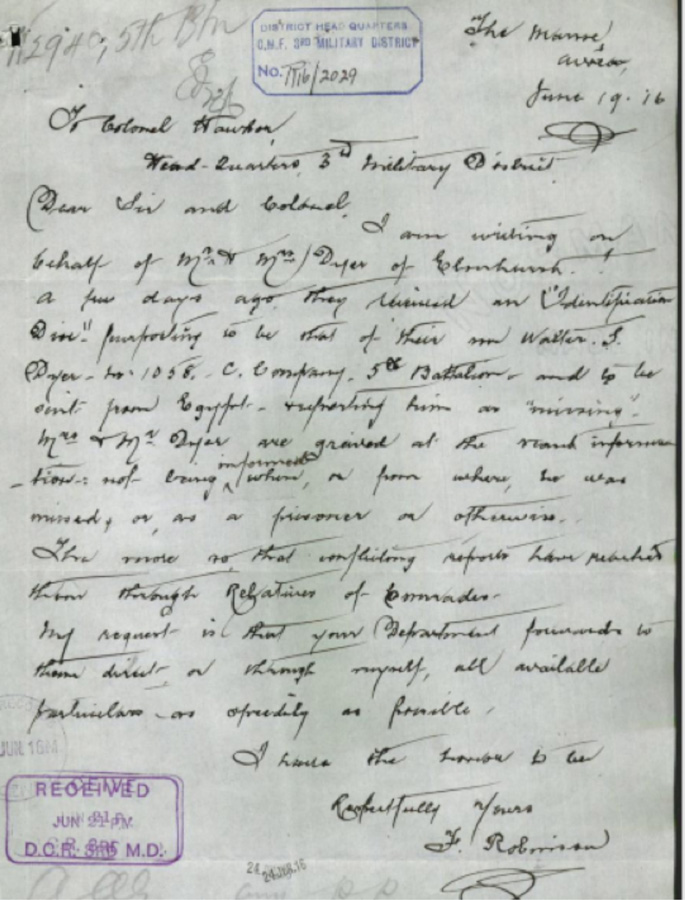 DISTRICT HEAD QUARTERS
C.M.F. 3RD MILITARY DISTRICT
No.
5th Btn
The Manse
June 19. 16
To Colonel Hawker,
Head-Quarters, 3rd Military District
Dear Sir and Colonel,
I am writing on
behalf of Mr & Mrs Dyer of Elmhurst.
A few days ago they received an "Identification
Disc" purporting to be that of their son Walter. S.
Dyer - No. 1058. C. Company. 5th Battalion - and to be
sent from Egypt - & reporting him as "missing".
Mrs & Mr Dyer are grieved at the informa
-tion: not being informed when, or from where, he was
missed, or, as a prisoner or otherwise.
The more so, that conflicting reports have reached
them through Relatives of Comrades.
My request is that your Department forwards to
them direct, or through myself, all available
particulars as speedily as possible.
I have the honour to be
Respectfully Yours
F. Robinson
RECEIVED
JUN 21 PM
D.O.R. 3RD M.D.
24 JUN. 16